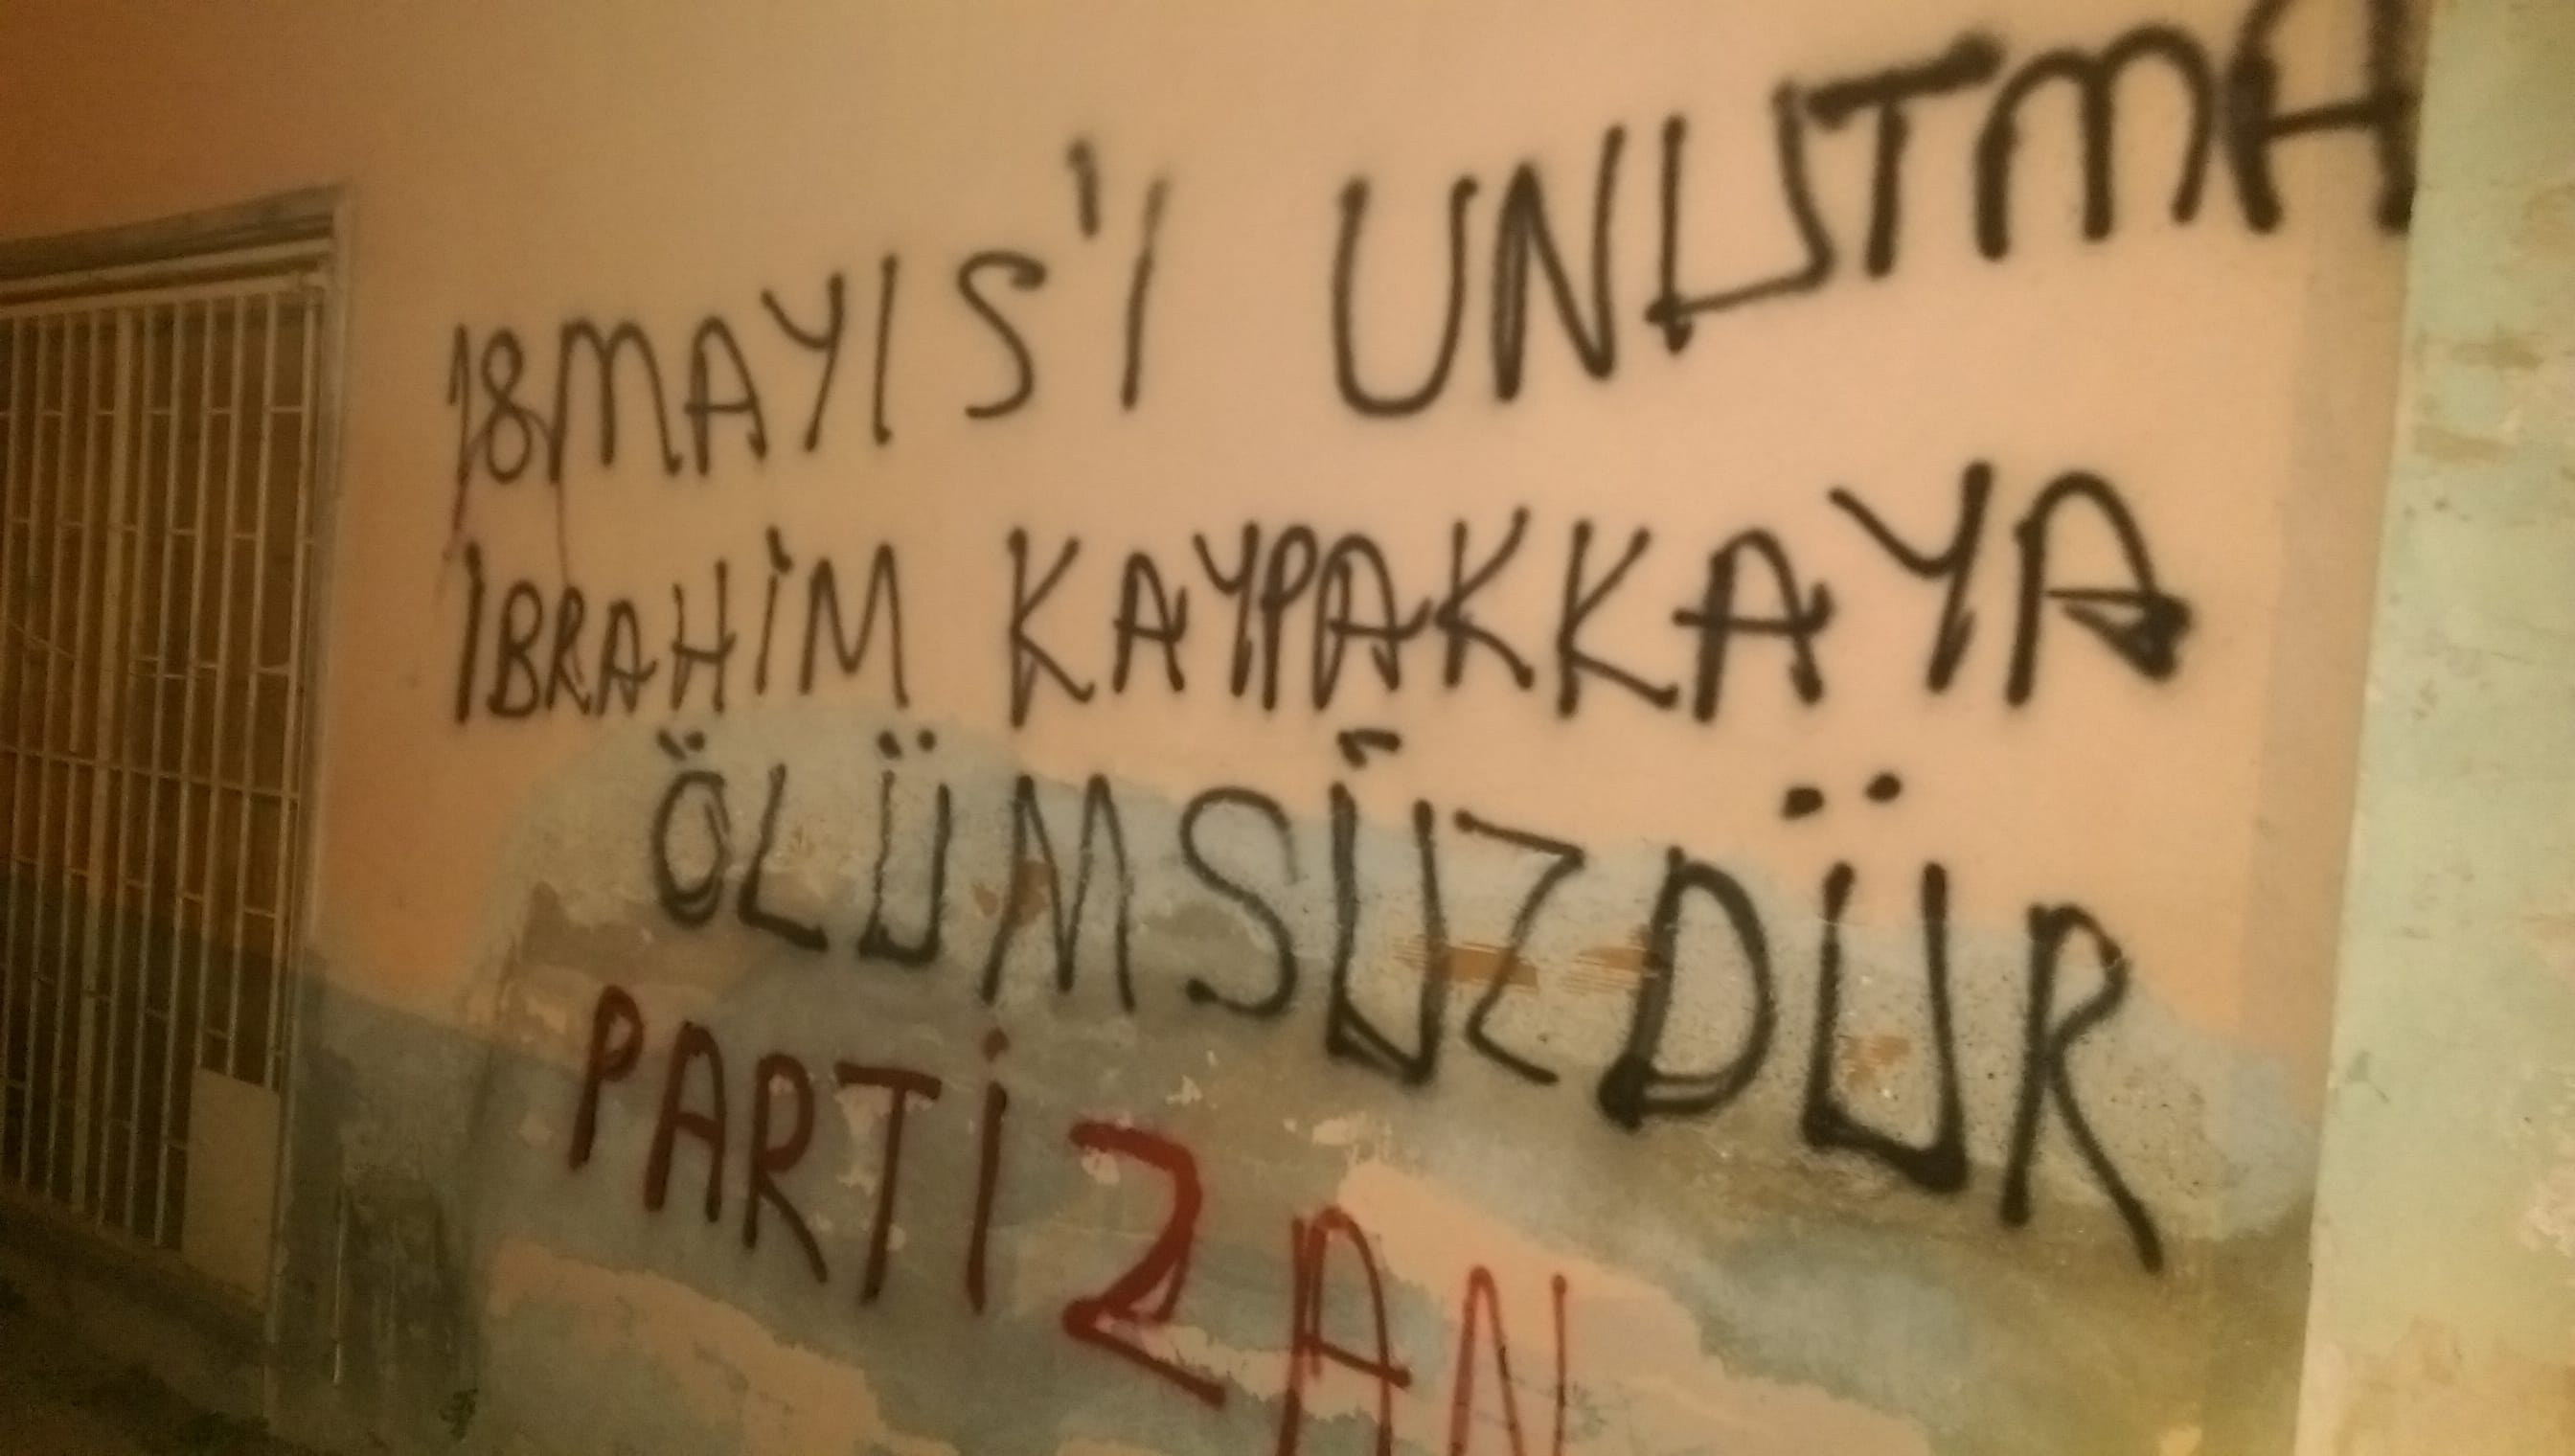 18 MAYIS'I UNUTMA
İBRAHİM KAYPAKKAYA
ÖLÜMSÜZDÜR
PARTİZAN